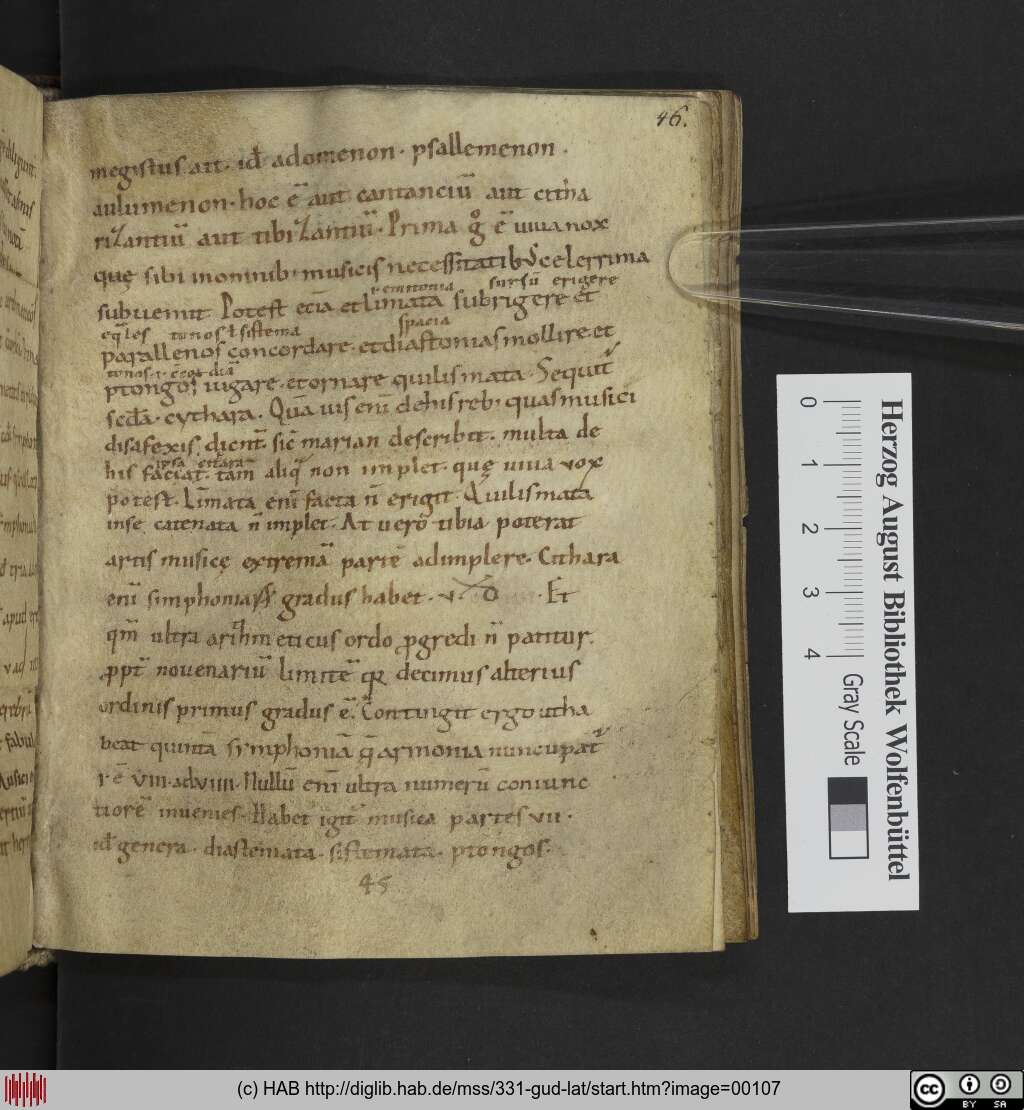 46.
megistus ait· id̄ adomenon· psallemenon·
aulumenon· hoc ē aut cantanciū aut cithა
rizantiū aut tibizantiū· Prima g ē uiua uox
quę sibi in omnib· musicis necessitatib; celerrima
semitonia sursū erigere
subuenit Potest etiā et limata subrigere et
eq̄les tonos ł sistema spacia
parallenos concordare· et diastonias mollire et
tonos·
ptongos uigare· et ornare quilismata· Sequit̄
scd̄a· cythara· Quā uis enī de his reb; quas musici
disafexis dicunt̄ sic̄ marian describit· multa de
ipsa citara
his faciat· tam̄ aliq̄ non implet· quę uiua uox
potest· Limata enī facta n̄ erigit· Quilismata
inse catenata n̄ implet· At uero tibia poterat
artis musicę extremā partē adimplere· Cithara
enī simphonias gradus habet· v· Et
qm̄ ultra arithmeticus ordo progredi n̄ patitur·
ppt̄ nouenariū limitē decimus alterius
ordinis primus gradus ē· Contingit ergo ut ha
beat quintā symphoniā q̄ armonia nuncupat̄
i·ē viii· ad viiii· Nullū enī ultra numerū coniunc
tiorē inuenies· Habet igit̄ musica partes vii·
id̄ genera· diastemata· sistemata· ptongos·
45
Herzog August Bibliothek Wolfenbüttel
0 1 2 3 4 Gray Scale
(c) HAB http://diglib.hab.de/mss/331-gud-lat/start.htm?image=00107
cc BY SA